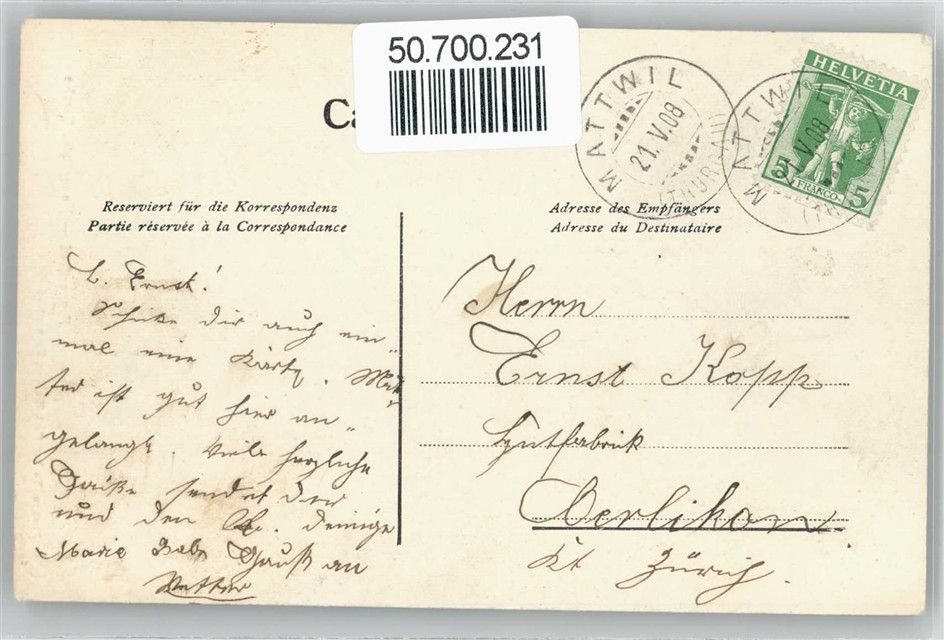 50.700.231
Ca
MATTWIL
21.V.08
(THURGAU)
MATTWIL
21.V.08
(TH
HELVETIA
5 FRANCO 5
Reserviert für die Korrespondenz
Partie réservée à la Correspondance
Adresse des Empfängers
Adresse du Destinataire
L. Ernst!
Schike dir auch ein„
mal eine Karte. Mut„
ter ist gut hier an„
gelangt. Viele herzliche
Grüße sendet dir
und den deinige
Marie Gruß an
Vetter
Herrn
Ernst Kopp
Hutfabrik
Oerlikon
Kt Zürich.